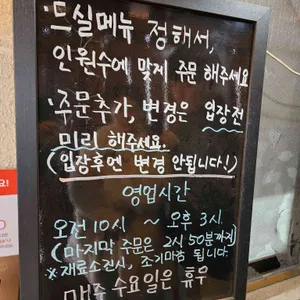 ·드실메뉴 정해서,
인원수에 맞게 주문 해주세요
·주문추가, 변경은 입장전
미리 해주세요.
(입장후엔 변경 안됩니다!)
영업시간
오전 10시 ~ 오후 3시.
(마지막 주문은 2시 50분까지)
※재료소진시, 조기마감 됩니다
매주 수요일은 휴무
요!